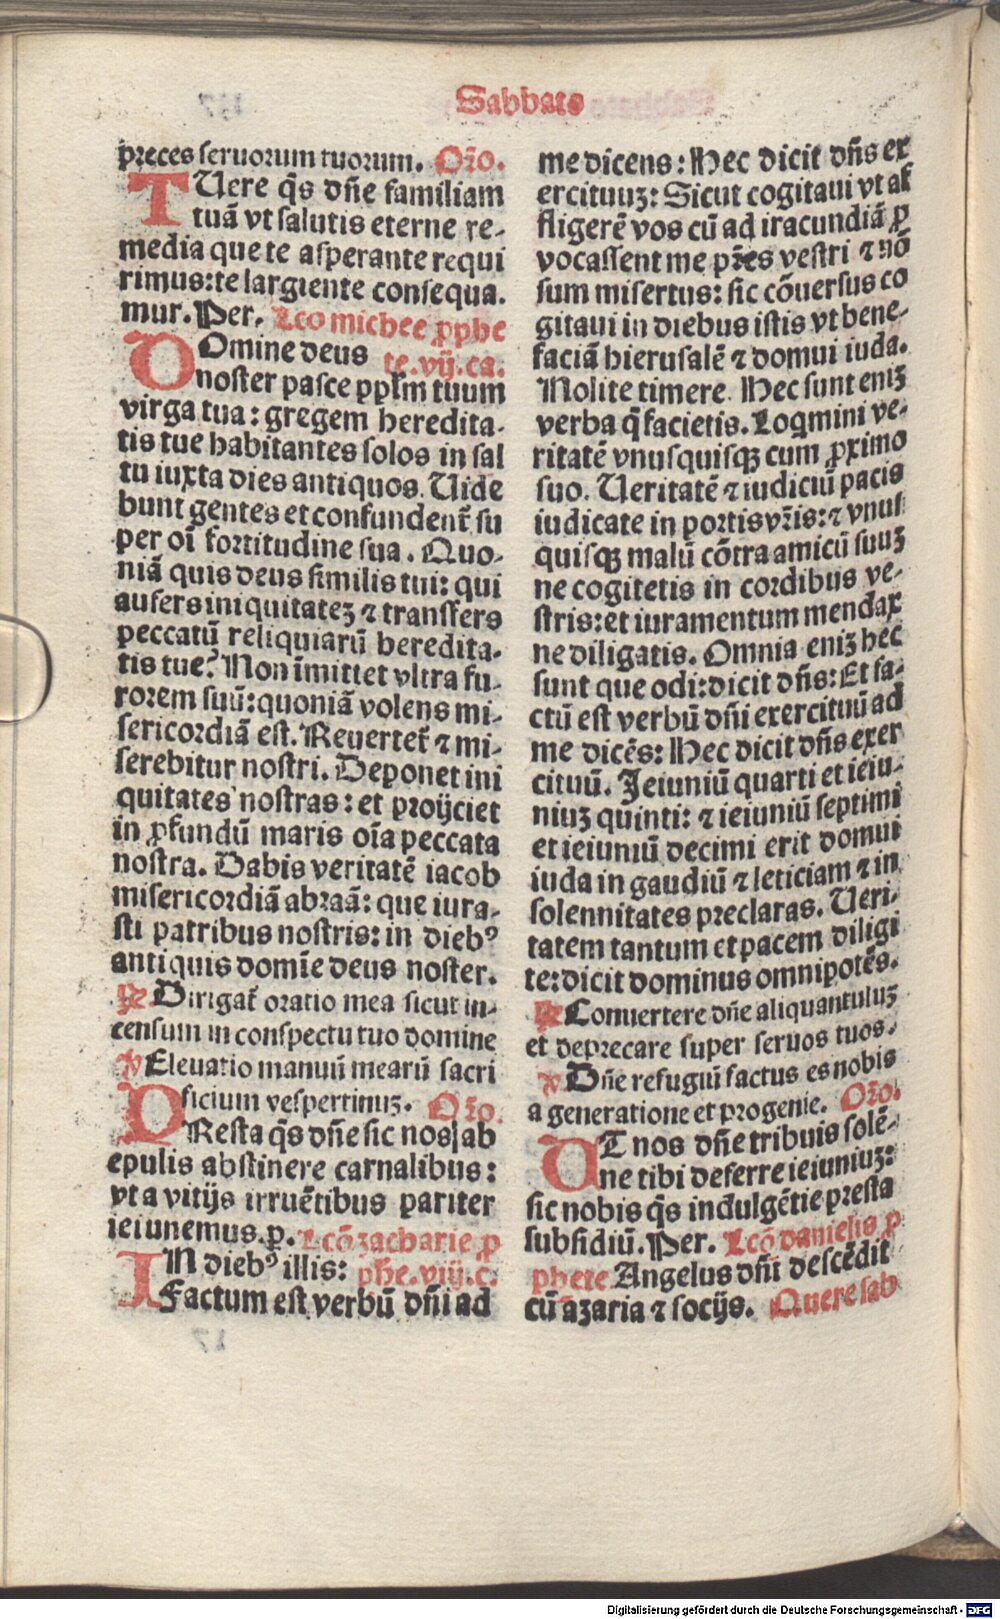 Sabbato
preces seruorum tuorum. Or̃o.
TUere q̃s dñe familiam
tuã vt salutis eterne re-
media que te asperante requi
rimus: te largiente consequa.
mur. Per. Lco michee ꝓphe
DOmine deus te. vij. ca.
noster pasce pplm̃ tuum
virga tua: gregem heredita-
tis tue habitantes solos in sal
tu iuxta dies antiquos. Uide
bunt gentes et confundent̃ su
per oĩ fortitudine sua. Quo-
niã quis deus similis tui: qui
aufers iniquitateʒ ⁊ transfers
peccatũ reliquiarũ heredita-
tis tue? Non ĩmittet vltra fu-
rorem suũ: quoniã volens mi-
sericordiã est. Reuertet̃ ⁊ mi-
serebitur nostri. Deponet ini
quitates nostras: et proijciet
in ꝓfundũ maris oĩa peccata
nostra. Dabis veritatẽ iacob
misericordiã abraã: que iura-
sti patribus nostris: in diebꝰ
antiquis domĩe deus noster.
℞ Dirigat̃ oratio mea sicut in-
censum in conspectu tuo domine
℣ Eleuatio manuũ mearũ sacri
ficium vespertinuʒ. Or̃o.
PResta q̃s dñe sic nos ab
epulis abstinere carnalibus:
vt a vitijs irruẽtibus pariter
ieiunemus. ꝑ. Lcõ zacharie ꝓ
IN diebꝰ illis: phe. viij. c.
Factum est verbũ dñi ad
me dicens: Hec dicit dñs ex
ercituuʒ: Sicut cogitaui vt af
fligerẽ vos cũ ad iracundiã ꝓ
vocassent me pr̃es vestri ⁊ nõ
sum misertus: sic cõuersus co
gitaui in diebus istis vt bene-
faciã hierusalẽ ⁊ domui iuda.
Nolite timere. Hec sunt eniʒ
verba q̃ facietis. Loqmini ve-
ritatẽ vnusquisqʒ cum ꝓximo
suo. Ueritatẽ ⁊ iudiciũ pacis
iudicate in portis vr̃is: ⁊ vnus
quisqʒ malũ cõtra amicũ suuʒ
ne cogitetis in cordibus ve-
stris: et iuramentum mendax
ne diligatis. Omnia eniʒ hec
sunt que odi: dicit dñs: Et fa-
ctũ est verbũ dñi exercituũ ad
me dicẽs: Hec dicit dñs exer
cituũ. Ieiuniũ quarti et ieiu-
niuʒ quinti: ⁊ ieiuniũ septimi
et ieiuniũ decimi erit domui
iuda in gaudiũ ⁊ leticiam ⁊ in
solennitates preclaras. Ueri-
tatem tantum et pacem diligi
te: dicit dominus omnipotẽs.
℞ Conuertere dñe aliquantuluʒ
et deprecare super seruos tuos.
℣ Dñe refugiũ factus es nobis
a generatione et progenie. Or̃o.
UT nos dñe tribuis solẽ-
ne tibi deferre ieiuniuʒ:
sic nobis q̃s indulgẽtie presta
subsidiũ. Per. Lcõ danielis ꝓ
phete Angelus dñi descẽdit
cũ azaria ⁊ socijs. Quere sab
Digitalisierung gefördert durch die Deutsche Forschungsgemeinschaft - DFG